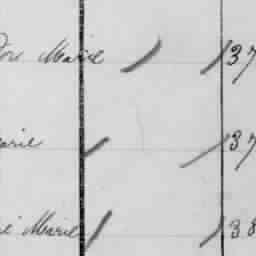 Marie 37
arie 37
Marie 38